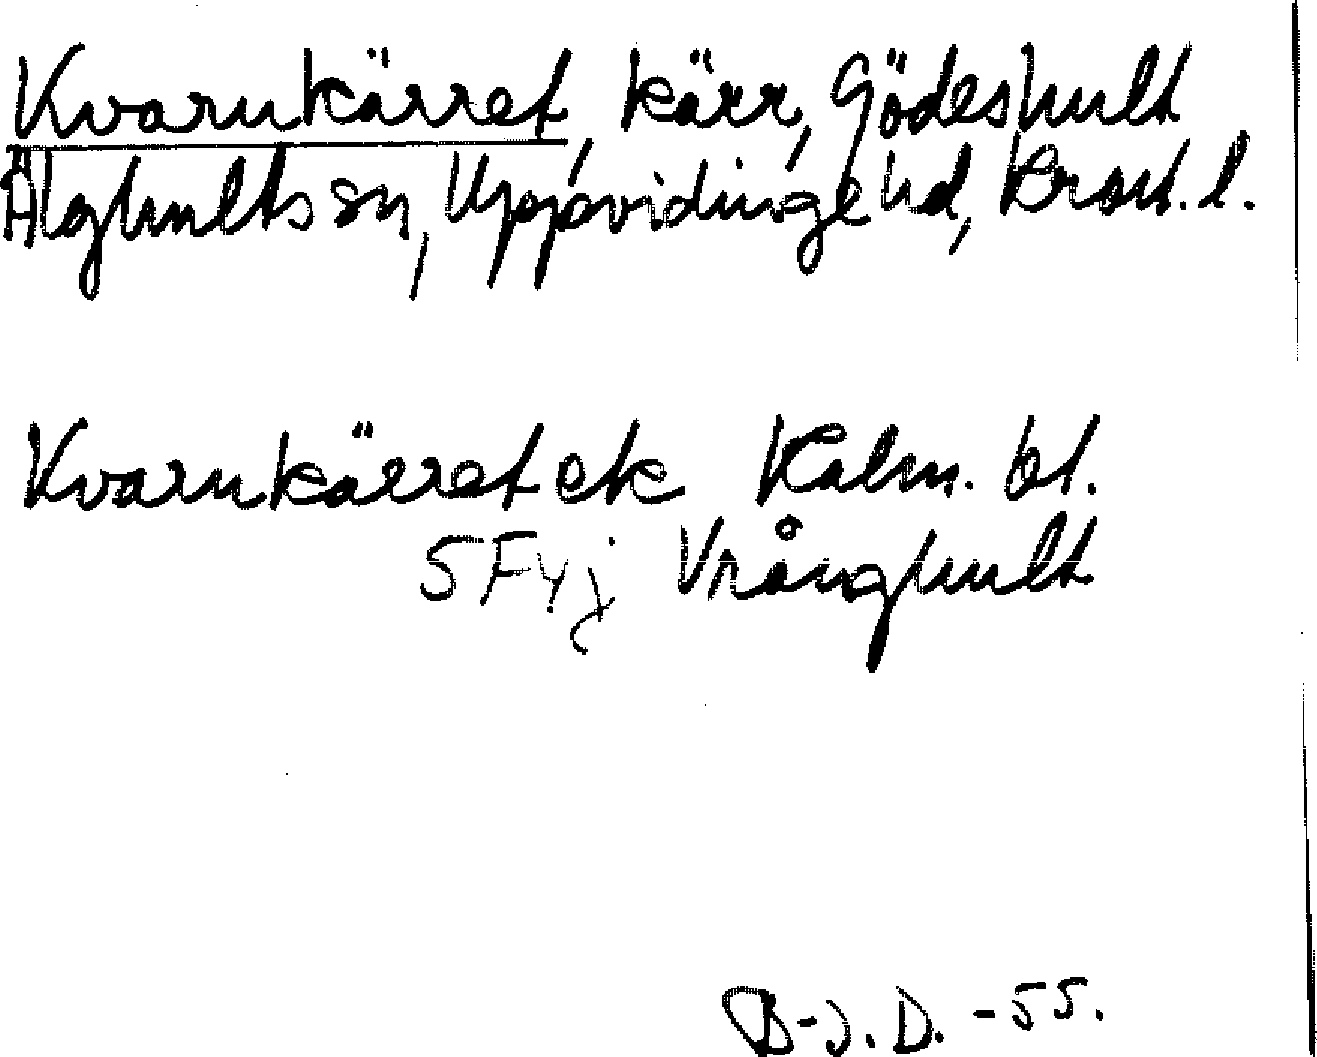 Kvarnkärret, kärr, Gödeshult
Älghults sn, Uppvidinge hd, Kron. l.
Kvarnkärret ek Kalm. bl.
5F4j Vrånghult
B-J. D. -55.